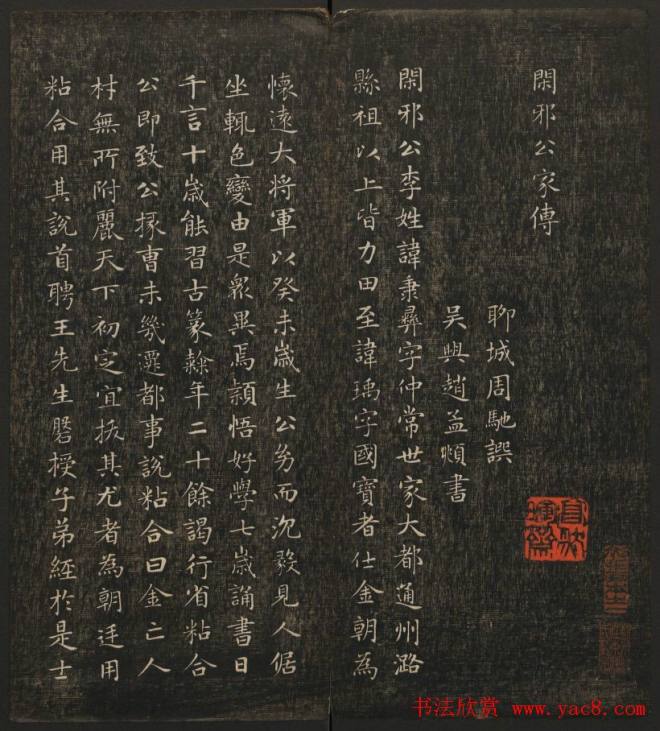 閑邪公家傳
聊城周馳譔
吴興趙孟頫書
閑邪公李姓諱秉彝字仲常世家大都通州潞
縣祖以上皆力田至諱瑀字國寶者仕金朝為
懷遠大将軍以癸未嵗生公㓜而沉毅見人倨
坐輒色變由是衆異焉穎悟好學七嵗誦書日
千言十嵗能習古篆籀年二十餘謁行省粘合
公即致公掾曹未幾遷都事說粘合曰金亡人
材無所附麗天下初定宜拔其尤者為朝廷用
粘合用其說首聘王先生磐授子弟經於是士
书法欣赏 www.yac8.com